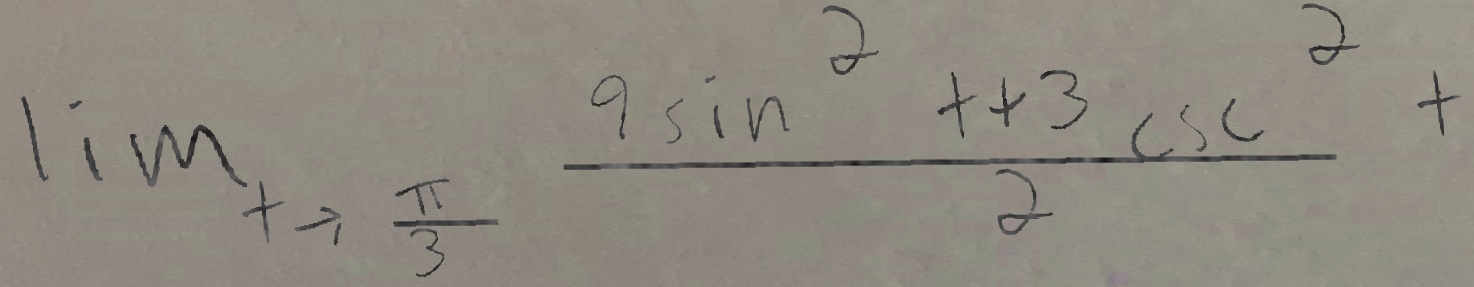 \lim_{t \to \frac{\pi}{3}} \frac{9 \sin^2 t + 3 \csc^2 t}{2}